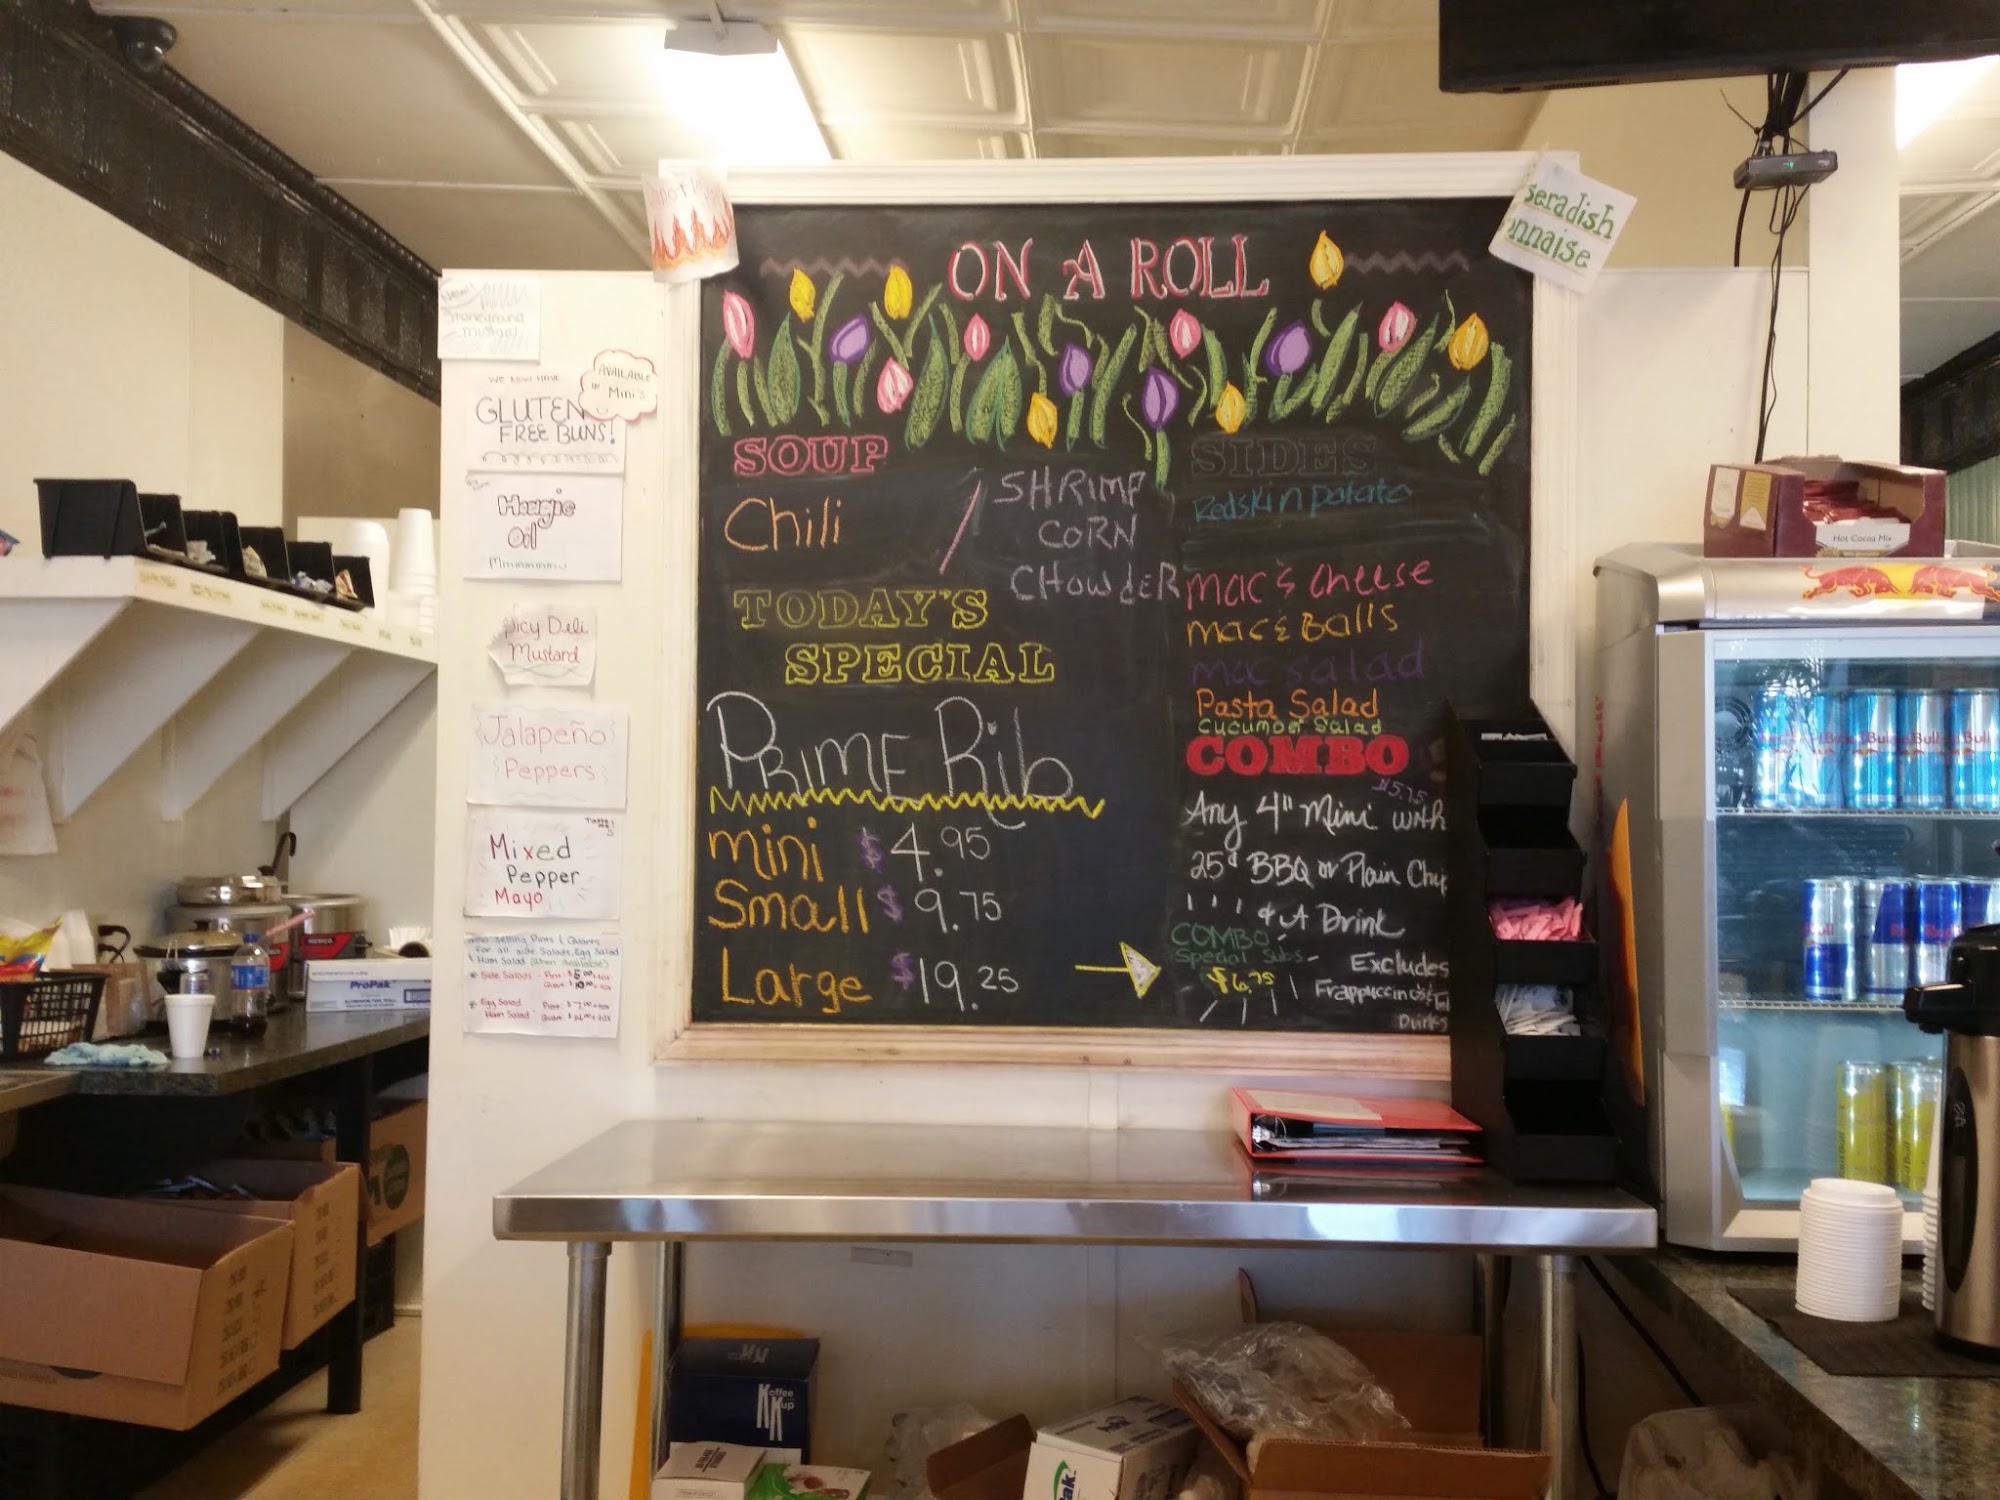 ON A ROLL
SOUP
Chili
SHRIMP
CORN
CHOWDER
TODAY'S
SPECIAL
PRIME Rib
mini $4.95
Small $9.75
Large $19.25
SIDES
Redskin potato
mac & cheese
mac & Balls
mac salad
Pasta Salad
Cucumber Salad
COMBO
$5.75
Any 4" Mini with
25¢ BBQ or Plain Chip
& A Drink
COMBO
Special Subs
$6.75
Excludes
Frappuccino's &
Drinks
seradish
onnaise
New!
Stoneground
mustard
WE NOW HAVE
GLUTEN
FREE BUNS!
AVAILABLE
IN
Mini's
Hoagie
Oil
Mmmmmmm
picy Deli
Mustard
Jalapeño
Peppers
Mixed
Pepper
Mayo
selling Pints & Quarts
for all side Salads, Egg Salad
& Ham Salad (When Available)
Side Salads - Pint $5.00
Quart $10.00
Egg Salad Pint $7.00
Ham Salad Quart $14.00
ProPak
Hot Cocoa Mix
Koffee
Kup
Red Bull